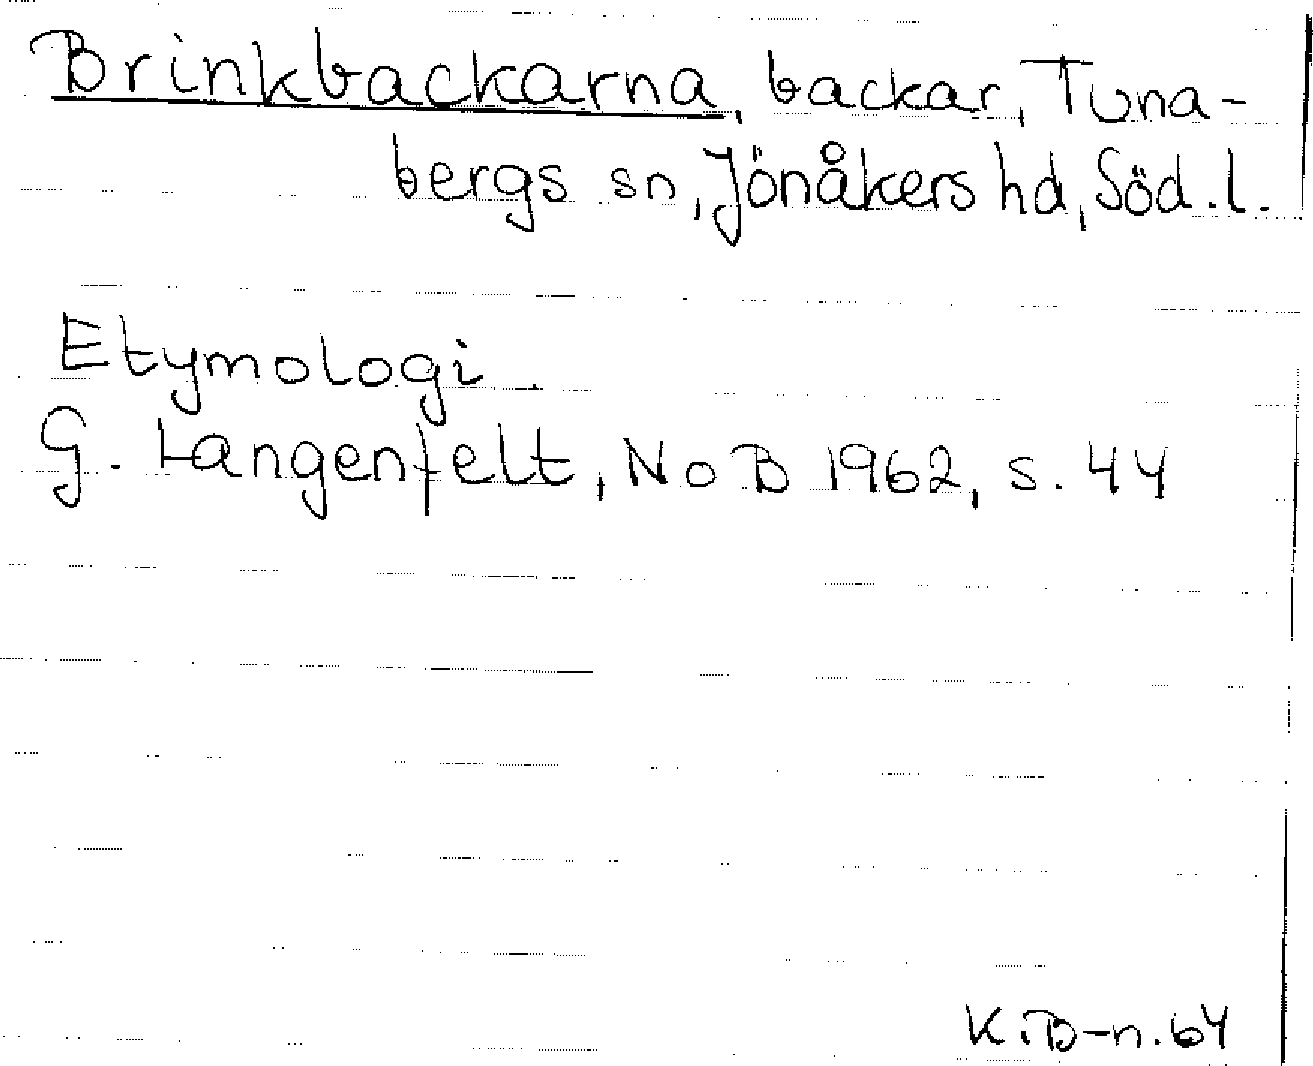 Brinkbackarna, backar, Tuna-
bergs sn, Jönåkers hd, Söd.l.
Etymologi
G. Langenfelt, NoB 1962, s. 44
K.B-n.64